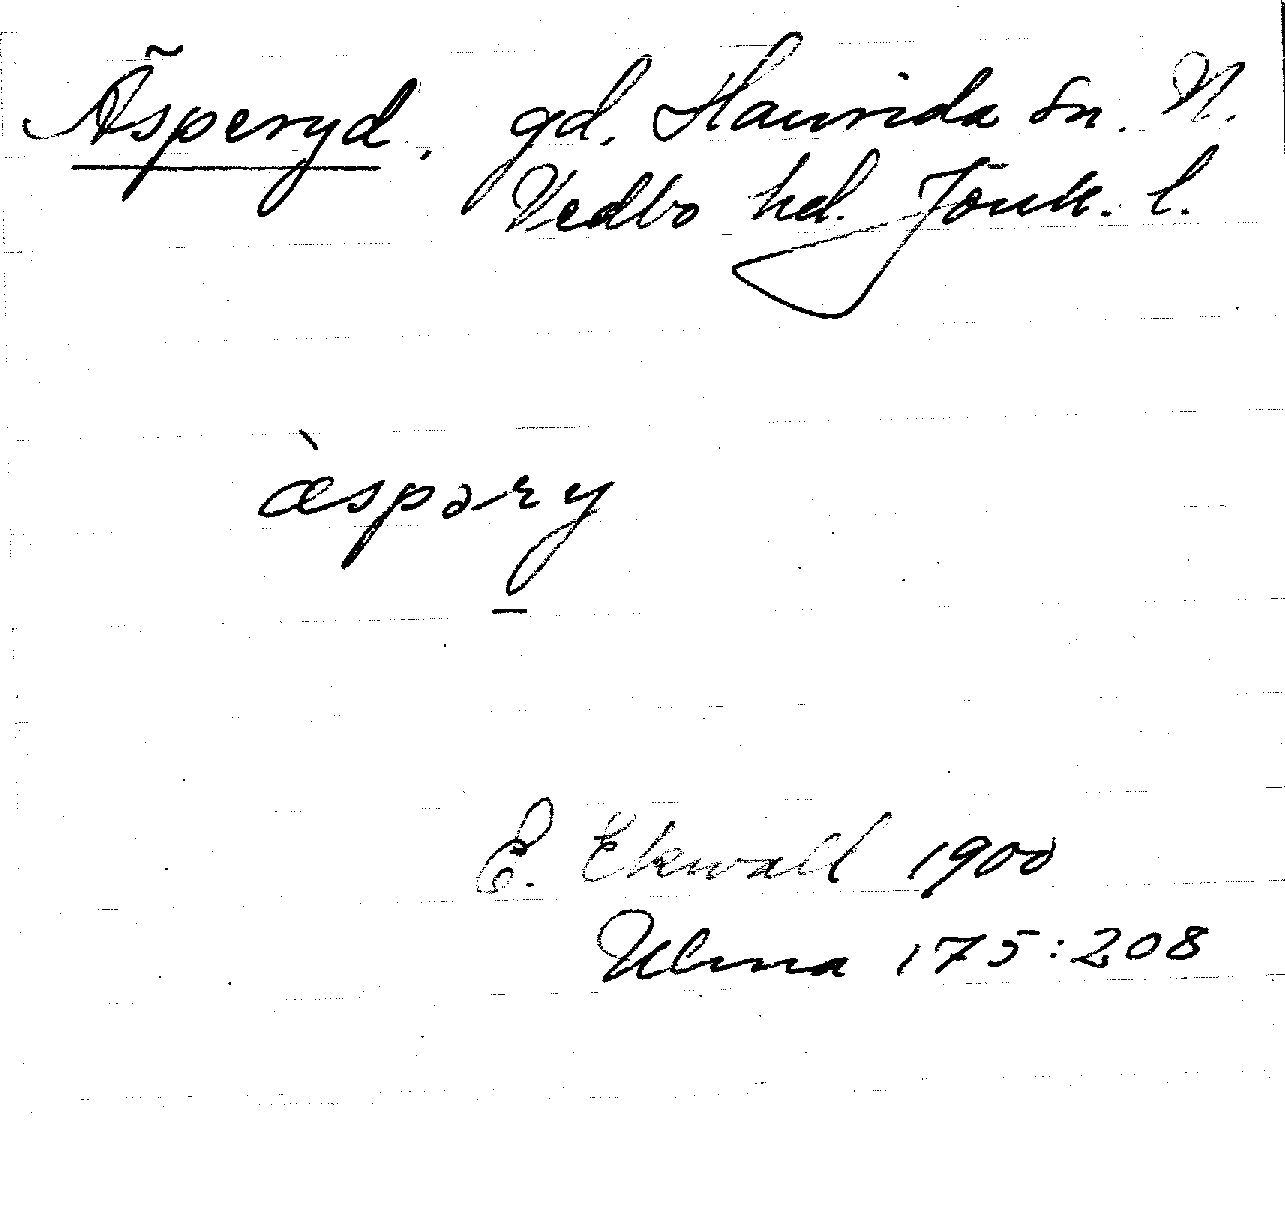 Äsperyd. gd. Haurida sn. N.
Vedbo hd. Jönk. l.
æ̀spəry
E. Ekwall 1900
Ulma 175:208